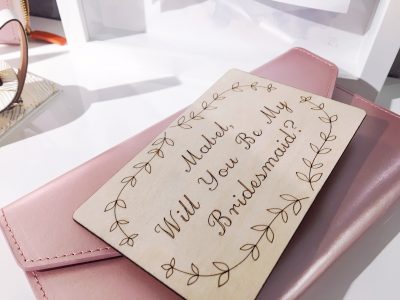 Mabel,
Will You Be My
Bridesmaid?